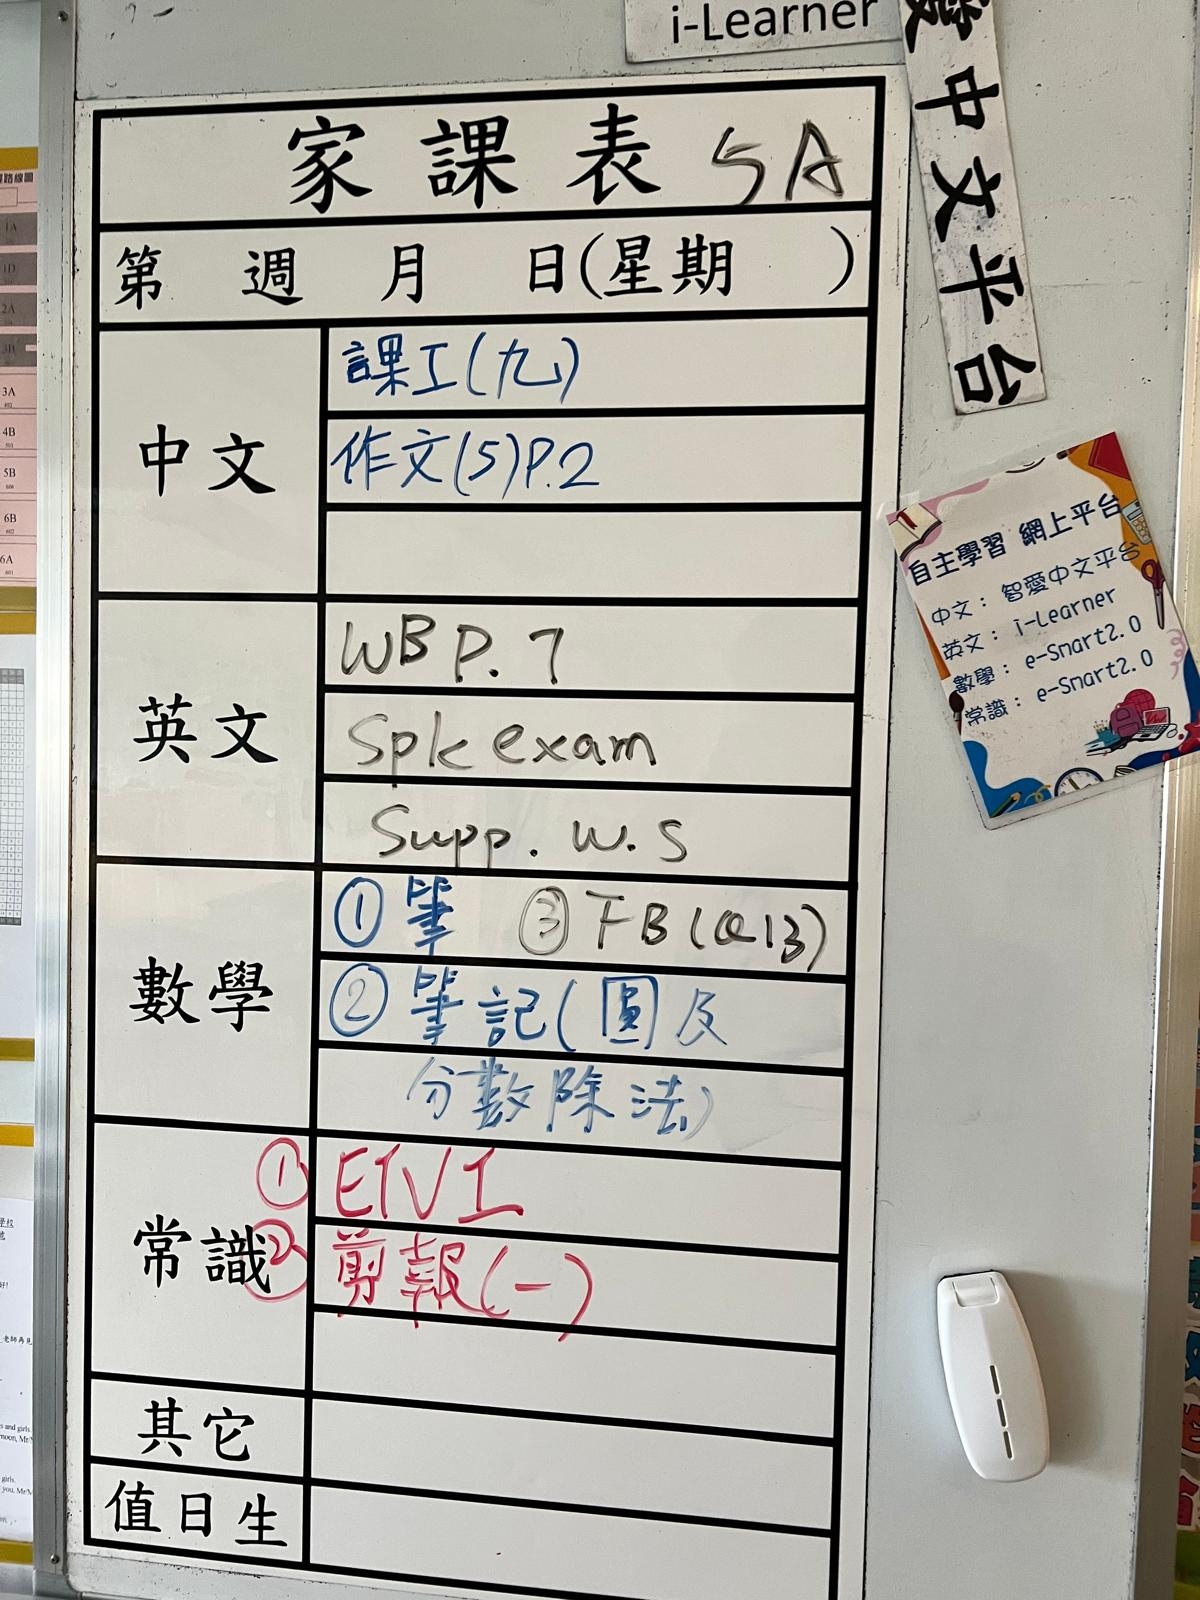 i-Learner
愛中文平台
家課表 5A
第 週 月 日(星期 )
中文
課工(九)
作文(5)P.2
英文
WB P.7
Spk exam
Supp. W.S
數學
① 筆 ③ FB(Q13)
② 筆記(圓及
分數除法)
常識
① ETVI
② 剪報(一)
其它
值日生
自主學習 網上平台
中文: 智愛中文平台
英文: i-Learner
數學: e-Smart2.0
常識: e-Smart2.0
路線圖
1A
1D
2A
3B
3A
4B
5B
6B
6A